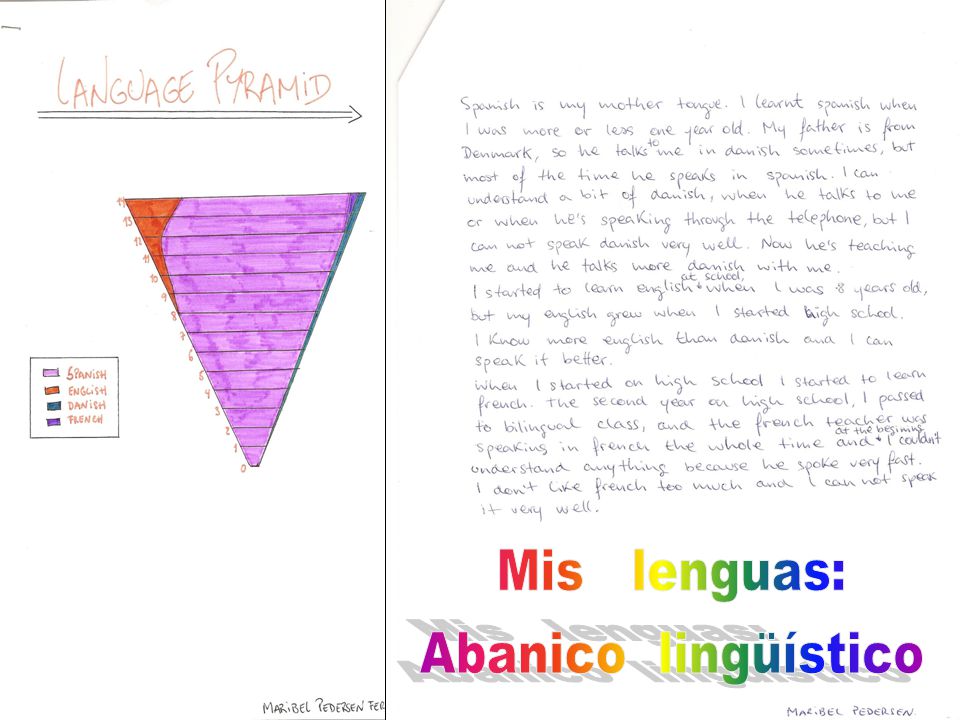 LANGUAGE PYRAMID
14
13
12
11
10
9
8
7
6
5
4
3
2
1
0
SPANISH
ENGLISH
DANISH
FRENCH
MARIBEL PEDERSEN FER
Spanish is my mother tongue. I learnt spanish when
I was more or less one year old. My father is from
Denmark, so he talks to me in danish sometimes, but
most of the time he speaks in spanish. I can
understand a bit of danish, when he talks to me
or when he's speaking through the telephone, but I
can not speak danish very well. Now he's teaching
me and he talks more danish with me.
I started to learn english at school, when I was 8 years old,
but my english grew when I started high school.
I know more english than danish and I can
speak it better.
When I started on high school I started to learn
french. The second year on high school, I passed
to bilingual class, and the french teacher was
speaking in french the whole time and at the begining I couldn't
understand anything because he spoke very fast.
I don't like french too much and I can not speak
it very well.
Mis lenguas:
Abanico lingüístico
MARIBEL PEDERSEN.